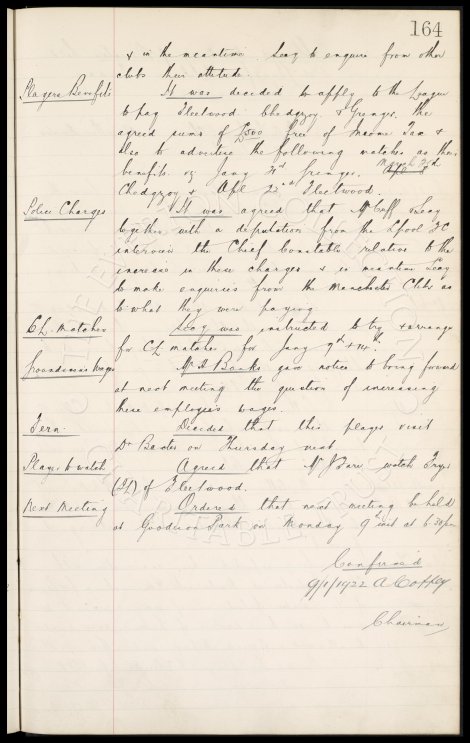 164
& in the meantime Secy to enquire from other
clubs their attitude.
Players Benefits It was decided to apply to the League
to pay Fleetwood. Chedgzoy & Grenyer. the
agreed sums of £500 free of Income Tax &
also to advertise the following matches as their
benefits. vz Jany 21st Grenyer. March 3d
Chedgzoy & Apl 22nd Fleetwood.
Police Charges It was agreed that Mr Cuff & Secy
together with a deputation from the Lpool FC
interview the Chief Constable relative to the
increase in these charges & in meantime Secy
to make enquiries from the Manchester Clubs as
to what they were paying
CL. Matches Secy was instructed to try & arrange
for CL matches for Jany 9th &
Groundsmans Wages Mr H Banks gave notice to bring forward
at next meeting the question of increasing
these employees wages.
Fern. Decided that this player visit
Dr Baxter on Thursday next
Player to watch Agreed that Mr J Fare watch
of Fleetwood.
Next Meeting Ordered that next meeting be held
at Goodison Park on Monday 9th inst at 6.30pm
Confirmed
9/1/1922 A Coffey
Chairman